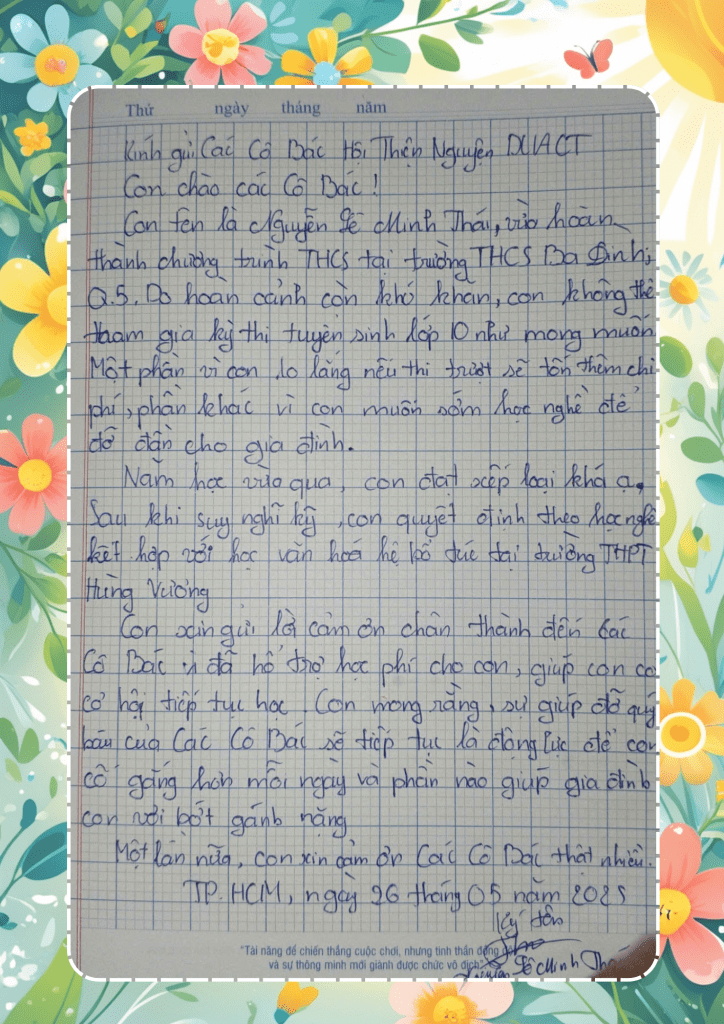 Thứ ngày tháng năm
Kính gửi Các Cô Bác Hội Thiện Nguyện DUACT
Con chào các Cô Bác!
Con tên là Nguyễn Lê Minh Thái, vừa hoàn
thành chương trình THCS tại trường THCS Ba Đình,
Q.5. Do hoàn cảnh còn khó khăn, con không thể
tham gia kỳ thi tuyển sinh lớp 10 như mong muốn.
Một phần vì con lo lắng nếu thi trượt sẽ tốn thêm chi
phí, phần khác vì con muốn sớm học nghề để
đỡ đần cho gia đình.
Năm học vừa qua, con đạt xếp loại khá ạ.
Sau khi suy nghĩ kỹ, con quyết định theo học nghề
kết hợp với học văn hoá hệ bổ túc tại trường THPT
Hùng Vương
Con xin gửi lời cảm ơn chân thành đến các
Cô Bác vì đã hỗ trợ học phí cho con, giúp con có
cơ hội tiếp tục học. Con mong rằng, sự giúp đỡ quý
báu của Các Cô Bác sẽ tiếp tục là động lực để con
cố gắng hơn mỗi ngày và phần nào giúp gia đình
con vơi bớt gánh nặng
Một lần nữa, con xin cảm ơn Các Cô Bác thật nhiều.
TP. HCM, ngày 26 tháng 05 năm 2025
Ký tên
"Tài năng để chiến thắng cuộc chơi, nhưng tinh thần đồng
và sự thông minh mới giành được chức vô địch"
Lê Minh Thái